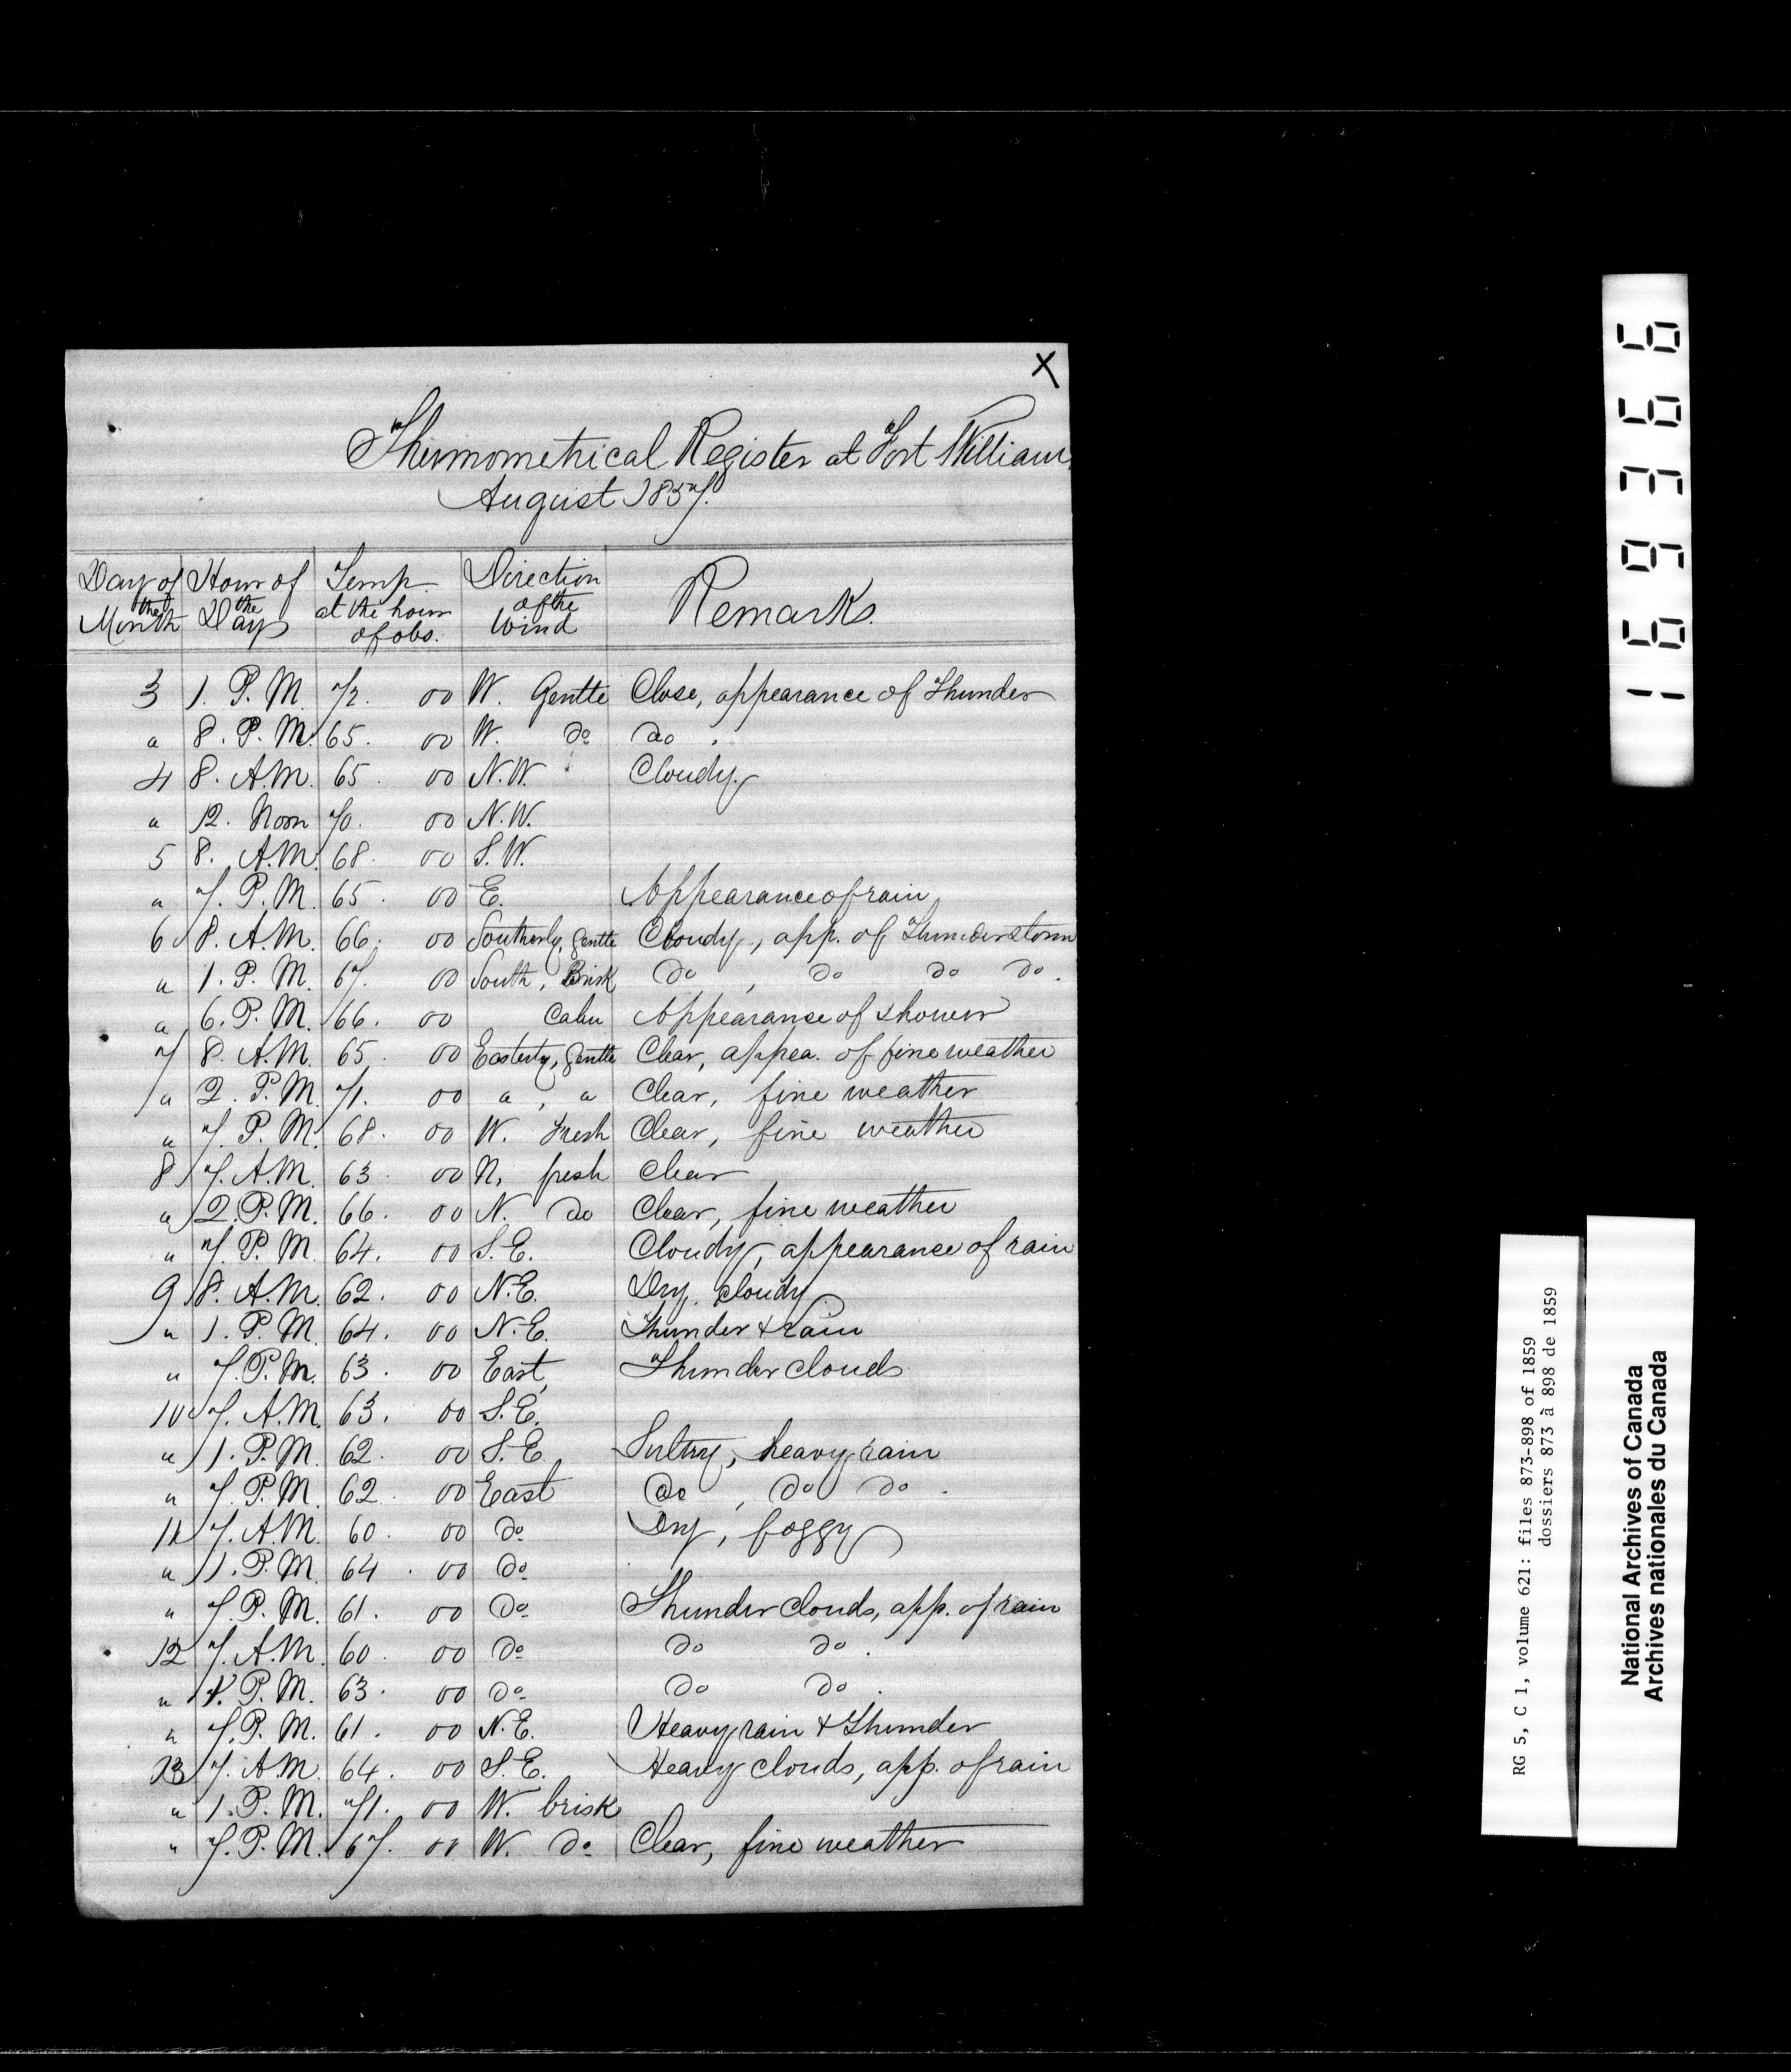 X
Thermometrical Register at Fort William,
August 1857.
Day of the Month | Hour of the Day | Temp. at the hour of obs. | Direction of the Wind | Remarks.
3 | 1. P.M. | 72. 00 | W. Gentle | Close, appearance of Thunder
" | 8. P.M. | 65. 00 | W. do | do.
4 | 8. A.M. | 65. 00 | N.W. | Cloudy.
" | 12. Noon | 70. 00 | N.W.
5 | 8. A.M. | 68. 00 | S.W.
" | 7. P.M. | 65. 00 | E. | Appearance of rain
6 | 8. A.M. | 66. 00 | Southerly, gentle | Cloudy, app. of Thunderstorm
" | 1. P.M. | 67. 00 | South, Brisk | do, do do do.
" | 6. P.M. | 66. 00 | Calm | Appearance of shower
7 | 8. A.M. | 65. 00 | Easterly, gentle | Clear, appea. of fine weather
" | 2. P.M. | 71. 00 | ", " | Clear, fine weather
" | 7. P.M. | 68. 00 | W. Fresh | Clear, fine weather
8 | 7. A.M. | 63. 00 | N, fresh | Clear
" | 2. P.M. | 66. 00 | N. do | Clear, fine weather
" | 7. P.M. | 64. 00 | S.E. | Cloudy, appearance of rain
9 | 8. A.M. | 62. 00 | N.E. | Dry. cloudy
" | 1. P.M. | 64. 00 | N.E. | Thunder & Rain
" | 7. P.M. | 63. 00 | East, | Thunder clouds
10 | 7. A.M. | 63. 00 | S.E.
" | 1. P.M. | 62. 00 | S.E. | Sultry, heavy rain
" | 7. P.M. | 62. 00 | East | do, do do.
11 | 7. A.M. | 60. 00 | do | Dry, foggy
" | 1. P.M. | 64. 00 | do
" | 7. P.M. | 61. 00 | do | Thunder clouds, app. of rain
12 | 7. A.M. | 60. 00 | do | do do.
" | 1. P.M. | 63. 00 | do | do do.
" | 7. P.M. | 61. 00 | N.E. | Heavy rain & Thunder
13 | 7. A.M. | 64. 00 | S.E. | Heavy clouds, app. of rain
" | 1. P.M. | 71. 00 | W. brisk
" | 7. P.M. | 67. 00 | W. do | Clear, fine weather
169366
RG 5, C 1, volume 621: files 873-898 of 1859
dossiers 873 à 898 de 1859
National Archives of Canada
Archives nationales du Canada